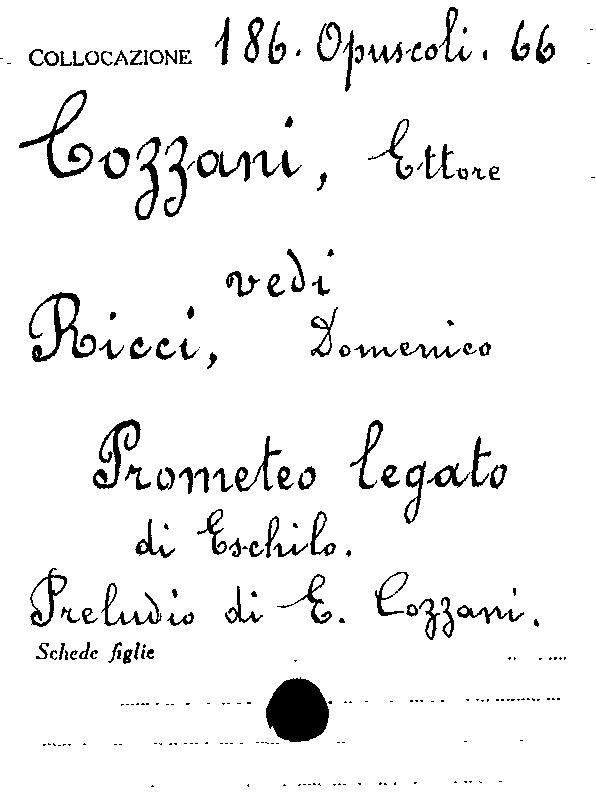 COLLOCAZIONE 186. Opuscoli. 66
Cozzani, Ettore
vedi
Ricci, Domenico
Prometeo legato
di Eschilo.
Preludio di E. Cozzani.
Schede figlie